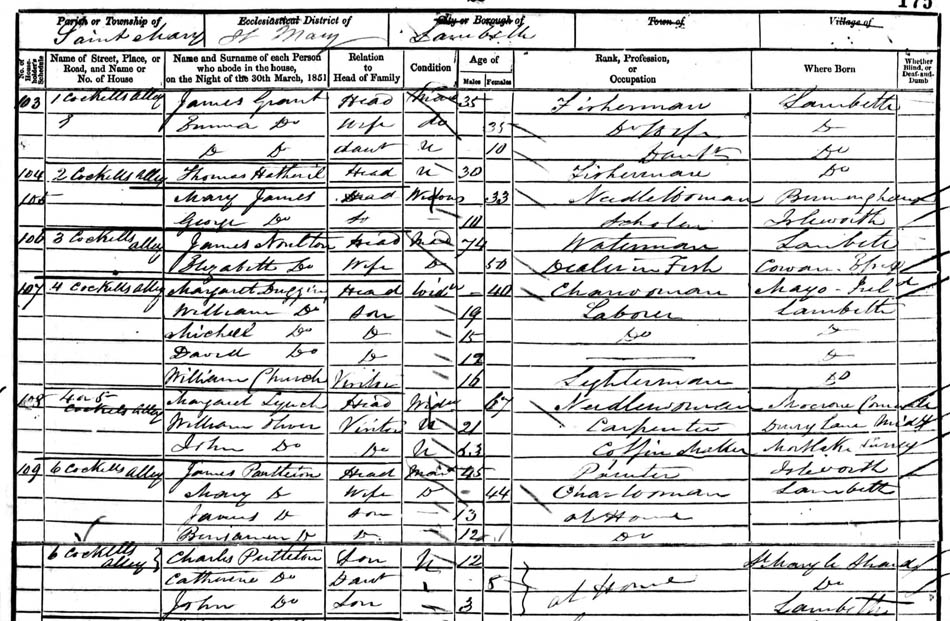 175
Parish or Township of Ecclesiastical District of City or Borough of Town of Village of
Saint Mary St Mary Lambeth
No. of Householder's Schedule Name of Street, Place, or Road, and Name or No. of House Name and Surname of each Person who abode in the house, on the Night of the 30th March, 1851 Relation to Head of Family Condition Age of Males Females Rank, Profession, or Occupation Where Born Whether Blind, or Deaf-and-Dumb
103 1 Cockells alley James Grant Head Mar 35 Fisherman Lambeth
Emma Do Wife do 35 Do Wife Do
D D daut U 10 Dautr Do
104 2 Cockells alley Thomas Head U 30 Fisherman Do
105 Mary James Head Widow 33 Needlewoman Birmingham
George Do So 10 Scholar Isleworth
106 3 Cockells alley James Noulton Head Mar 74 Waterman Lambeth
Elizabeth Do Wife D 50 Dealer in Fish Cowan
107 4 Cockells alley Margaret Duggin Head Widw 40 Charwoman Mayo Ireld
William Do Son 19 Laborer Lambeth
Michell Do D 15 Do D
David Do D 12 D
William Church Visitor 16 Lyhterman DO
108 4 or 5 Cockells alley Margaret Lynch Head Widw 67 Needlewoman
William Oliver Visitor U 21 Carpenter Drury Lane Midx
John Do Do U 23 Coffin Maker Mortlake Surrey
109 6 Cockells alley James Pettleton Head Mar 45 Painter Isleworth
Mary D Wife D 44 Charwoman Lambeth
James D Son 13 at Home
Benjamen D D 12 Do
6 Cockells alley Charles Pettleton Son U 12 St Mary le Strand
Catherine Do Daut 5 at Home Do
John Do Son 3 Lambeth